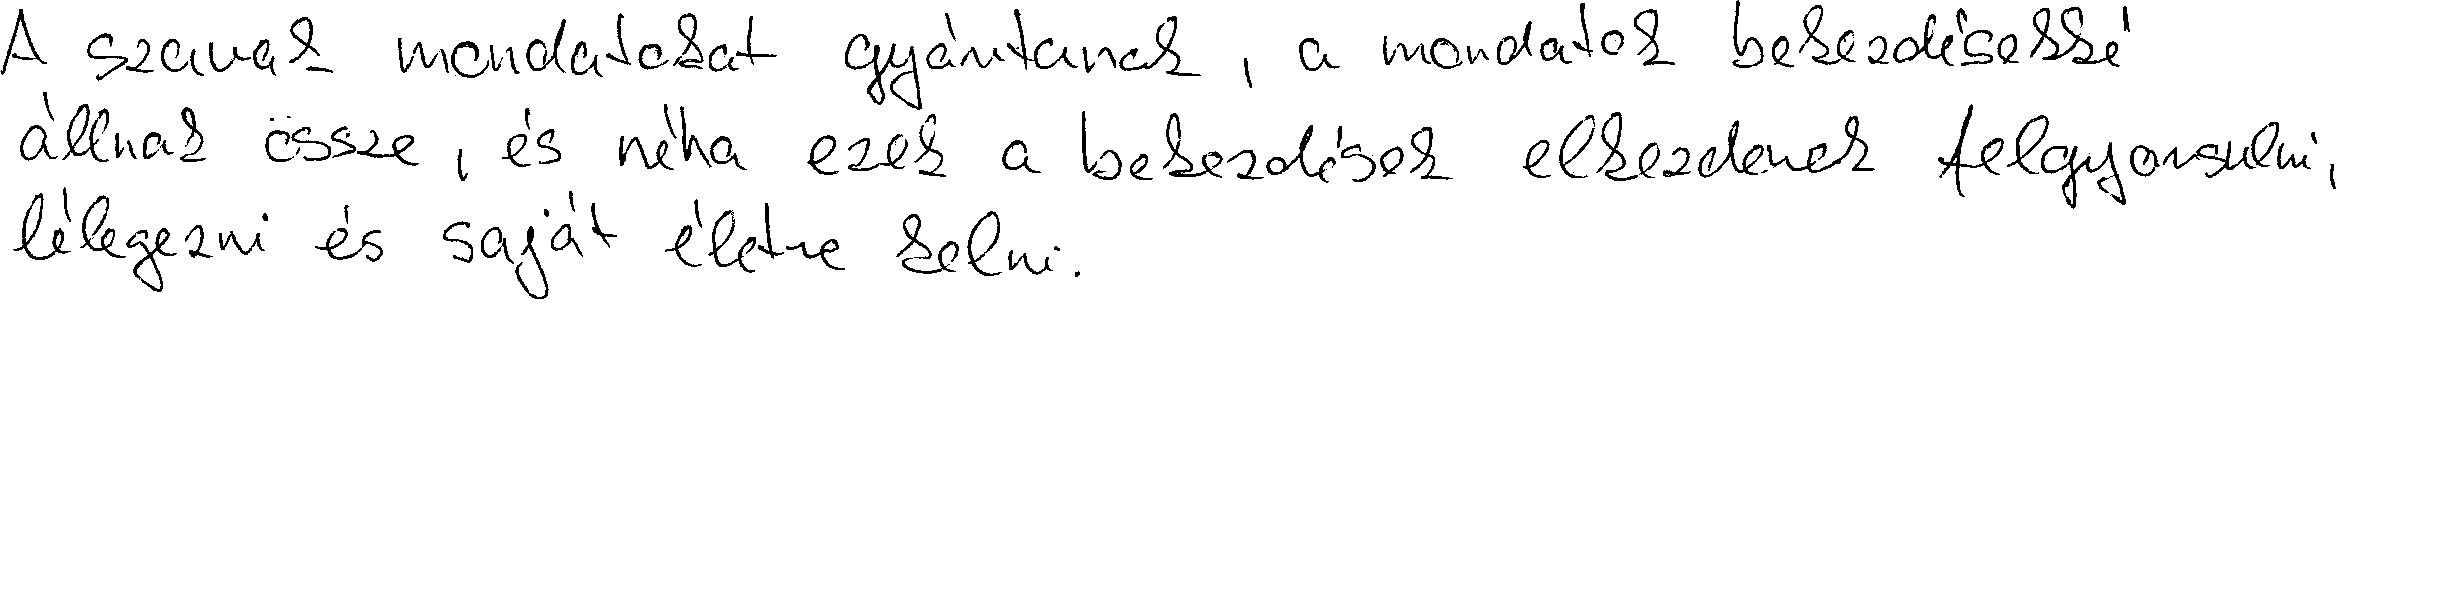 A szavak mondatokat gyártanak, a mondatok bekezdésekké
állnak össze, és néha ezek a bekezdések elkezdenek felgyorsulni,
lélegezni és saját életre kelni.